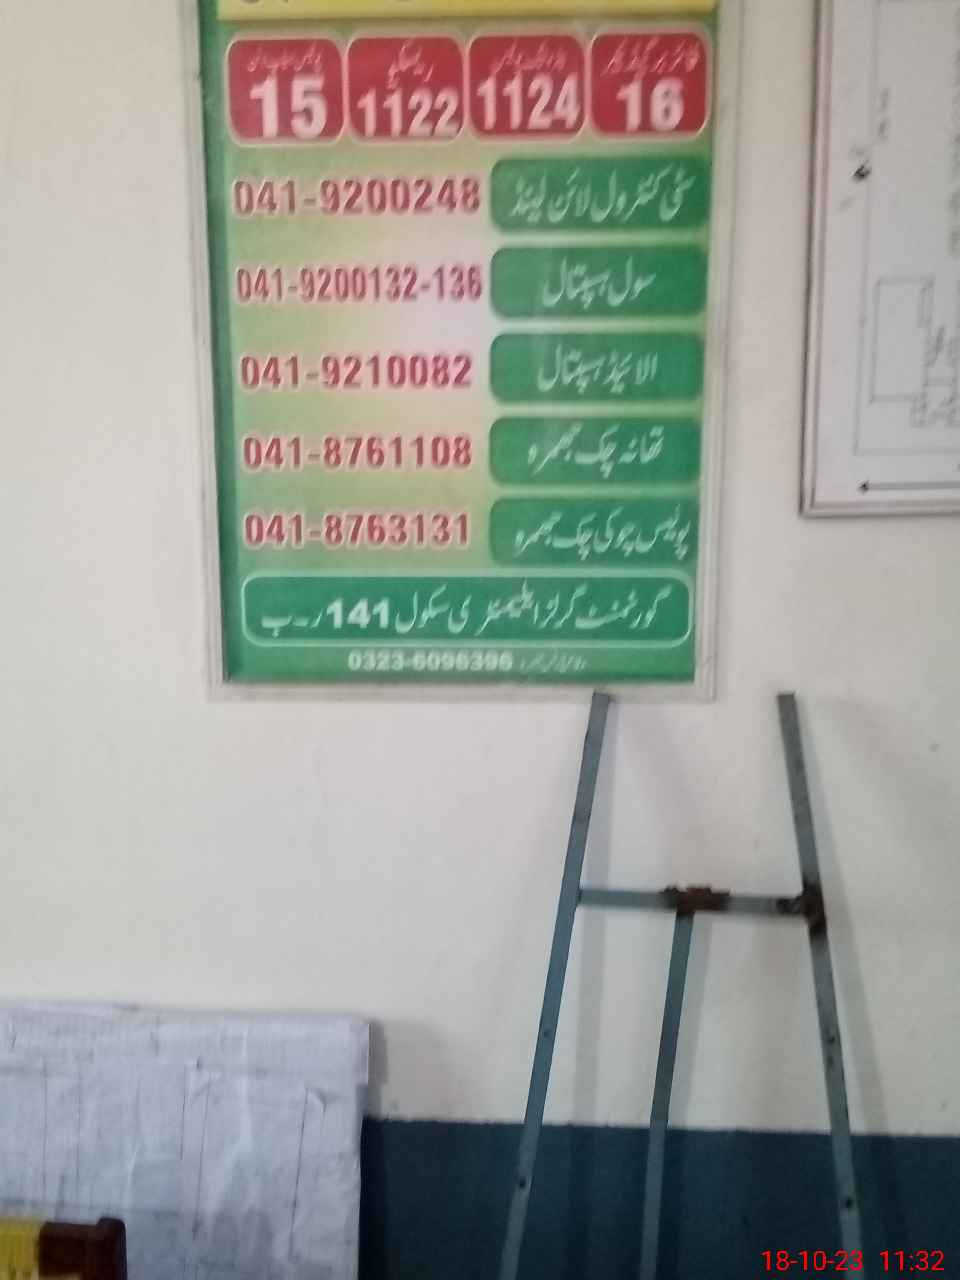 15 1122 ریسکیو 1124 16 فائر بریگیڈ
041-9200248 سٹی کنٹرول لائن لینڈ
041-9200132-136 سول ہسپتال
041-9210082 الائیڈ ہسپتال
041-8761108 تھانہ چک جھمرہ
041-8763131 پولیس چوکی چک جھمرہ
گورنمنٹ گرلز ایلیمنٹری سکول 141 ر۔ب
0323-6096396
18-10-23 11:32